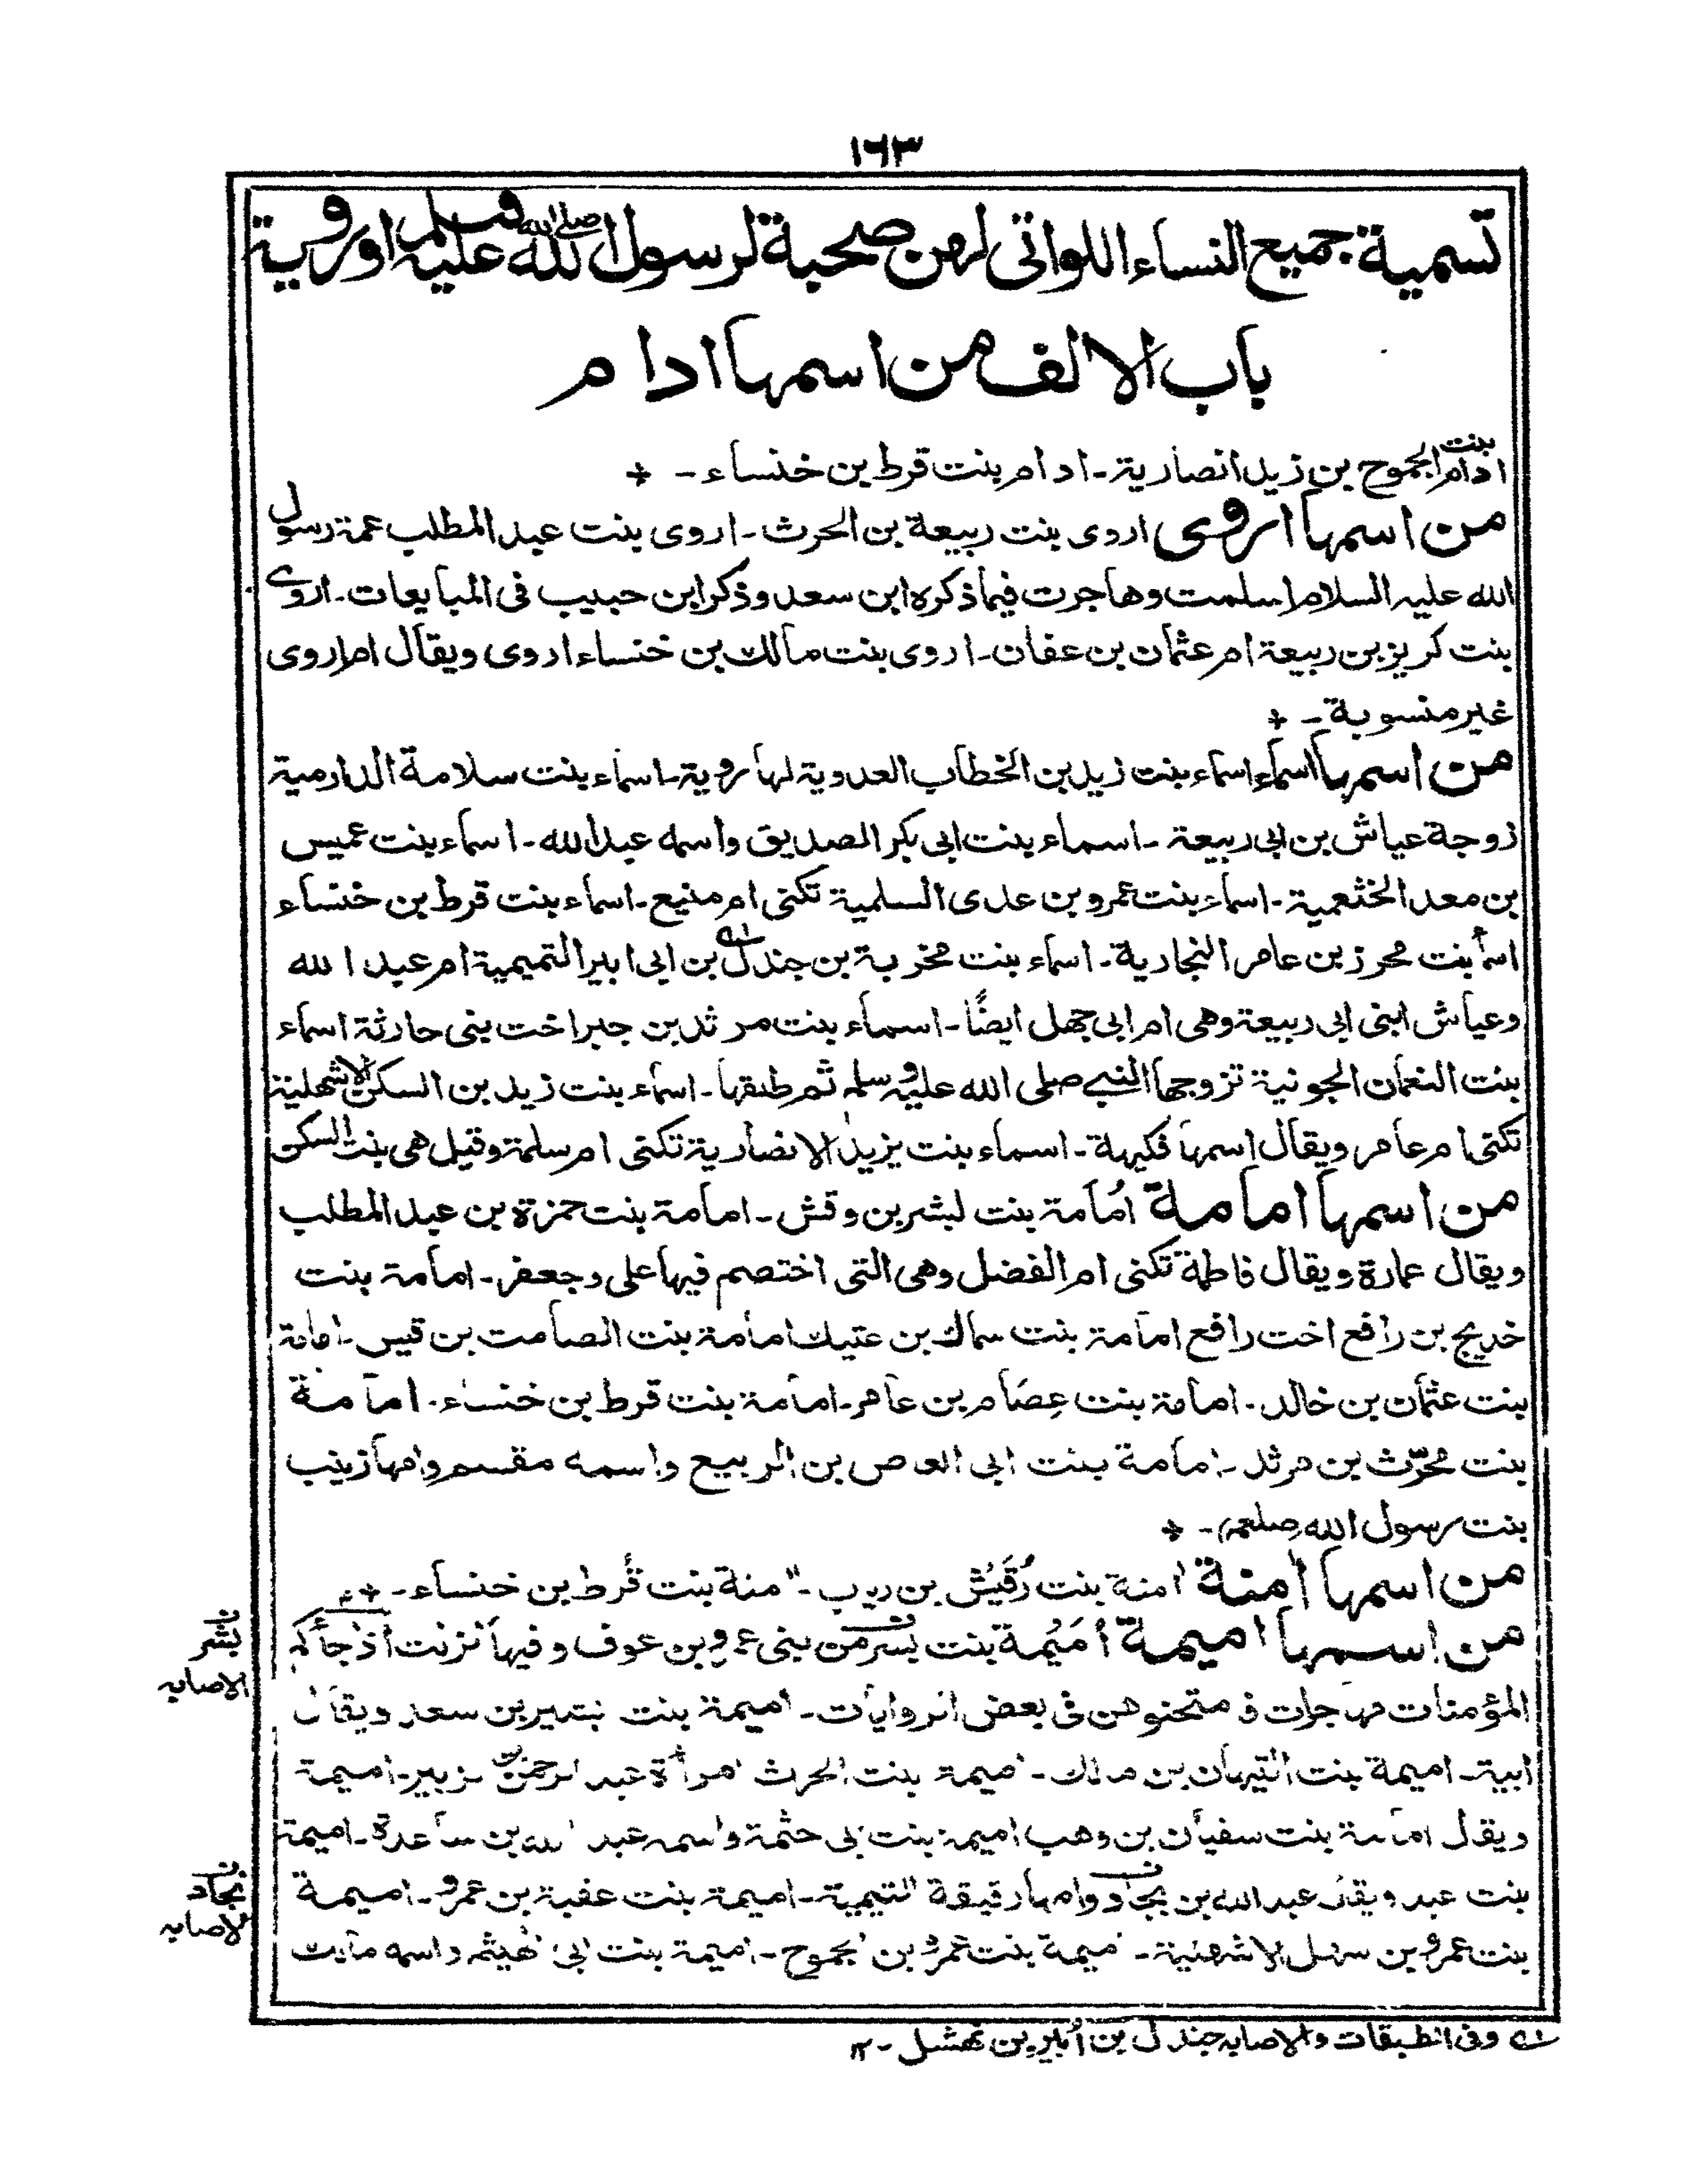 ١٦٣
تسمية جميع النساء اللواتى لهن صحبة لرسول الله صلى الله عليه وسلم او روية
باب الالف من اسمها ادام
ادام بنت الجموح بن زيد انصارية - ادام بنت قرط بن خنساء -
من اسمها اروى اروى بنت ربيعة بن الحرث - اروى بنت عبد المطلب عمة رسول
الله عليه السلام اسلمت وهاجرت فيما ذكره ابن سعد وذكر ابن حبيب فى المبايعات - اروى
بنت كريز بن ربيعة ام عثمان بن عفان - اروى بنت مالك بن خنساء اروى ويقال ام اروى
غير منسوبة -
من اسمها اسماء اسماء بنت زيد بن الخطاب العدوية لها روية - اسماء بنت سلامة الدارمية
زوجة عياش بن ابى ربيعة - اسماء بنت ابى بكر الصديق واسمه عبد الله - اسماء بنت عميس
بن معد الخثعمية - اسماء بنت عمرو بن عدى السلمية تكنى ام منيع - اسماء بنت قرط بن خنساء
اسماء بنت محرز بن عامر النجارية - اسماء بنت مخربة بن جندل بن ابى ابير التميمية ام عبد الله
وعياش ابنى ابى ربيعة وهى ام ابى جهل ايضًا - اسماء بنت مرثد بن جبر اخت بنى حارثة اسماء
بنت النعمان الجونية تزوجها النبى صلى الله عليه وسلم ثم طلقها - اسماء بنت زيد بن السكن الاشهلية
تكنى ام عامر ويقال اسمها فكيهة - اسماء بنت يزيد الانصارية تكنى ام سلمة وقيل هى بنت السكن
من اسمها امامة اُمَامة بنت لبشر بن وقش - امامة بنت حمزة بن عبد المطلب
ويقال عمارة ويقال فاطمة تكنى ام الفضل وهى التى اختصم فيها على وجعفر - امامة بنت
خديج بن رافع اخت رافع امامة بنت سماك بن عتيك امامة بنت الصامت بن قيس - امامة
بنت عثمان بن خالد - امامة بنت عِصَام بن عامر - امامة بنت قرط بن خنساء - امامة
بنت محرّث بن مرثد - امامة بنت ابى العاص بن الربيع واسمه مقسم وامها زينب
بنت رسول الله صلعم -
من اسمها اٰمنة اٰمنة بنت رُقَيْش بن رياب - اٰمنة بنت قرط بن خنساء -
من اسمها اميمة اُمَيْمة بنت بسر من بنى عمرو بن عوف وفيها نزلت اذا جاءكم
المؤمنات مهاجرات فامتحنوهن فى بعض الروايات - اميمة بنت بشير بن سعد ويقال
ابية - اميمة بنت التيهان بن مالك - اميمة بنت الحرث امرأة عبد الرحمن بن زبير - اميمة
ويقال امامة بنت سفيان بن وهب اميمة بنت ابى حثمة واسمه عبد الله بن ساعدة - اميمة
بنت عبد ويقال عبد الله بن بجاد وامها رقيقة التيمية - اميمة بنت عقبة بن عمرو - اميمة
بنت عمرو بن سهل الاشهلية - اميمة بنت عمرو بن الجموح - اميمة بنت ابى الهيثم واسمه مالك
بشر
الاصابه
نجاد
الاصابه
وفى الطبقات والاصابه جندل بن اُبَير بن نهشل - ١٢